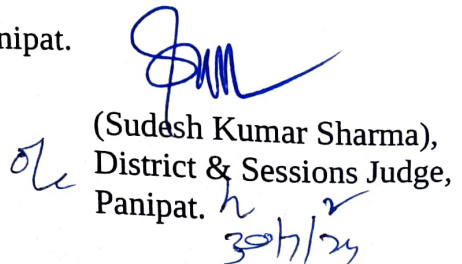 nipat.
(Sudesh Kumar Sharma),
District & Sessions Judge,
Panipat.